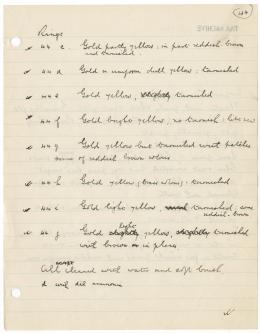 44
TAA ARCHIVE
Rings
44 c. Gold partly yellow; in part reddish brown
and tarnished
44 d Gold a uniform dull yellow: tarnished
44 e Gold yellow, slightly tarnished
44 f Gold bright yellow, no tarnish: like new
44 g Gold yellow but tarnished with patches
some of reddish brown colour
44 h Gold yellow (brass colour): tarnished
44 i Gold light yellow, tarnished, some
reddish-brown
light
44 j Gold slightly yellow, slightly tarnished
with brown in places
All cleaned with water and soft brush
& with dil ammonia